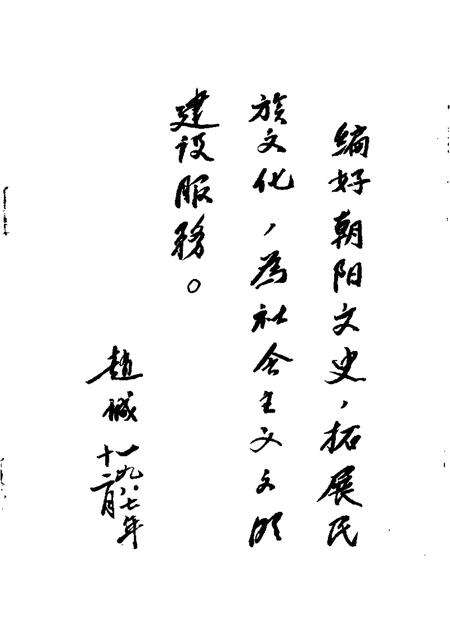 编好朝阳文史，拓展民
族文化，为社会主义文明
建设服务。
赵城
一九八七年
十二月